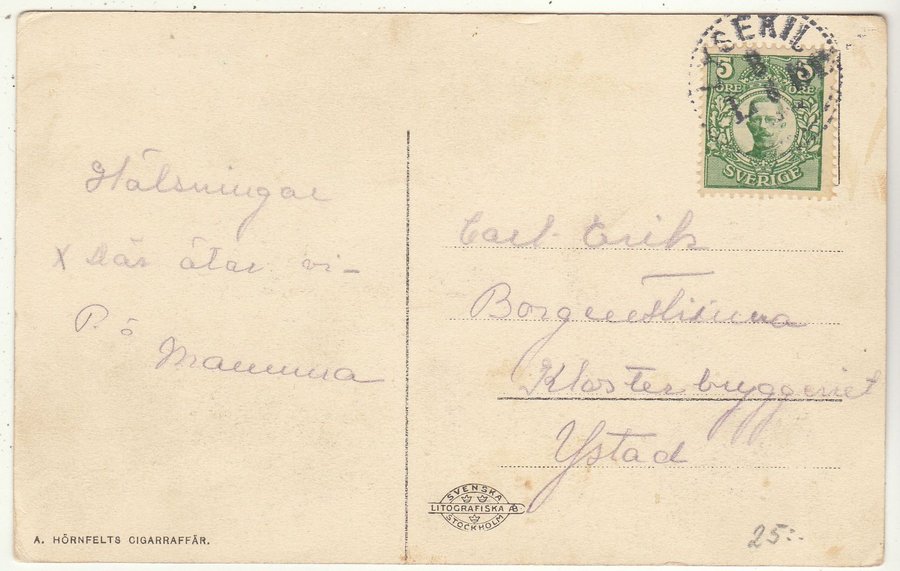 LYSEKIL
5 5
ÖRE ÖRE
SVERIGE
Hälsningar
X Här äter vi –
P. o
Mamma
Carl-Erik
Borgenstierna
Klosterbryggeriet
Ystad
SVENSKA
LITOGRAFISKA AB
STOCKHOLM
A. HÖRNFELTS CIGARRAFFÄR.
25:-